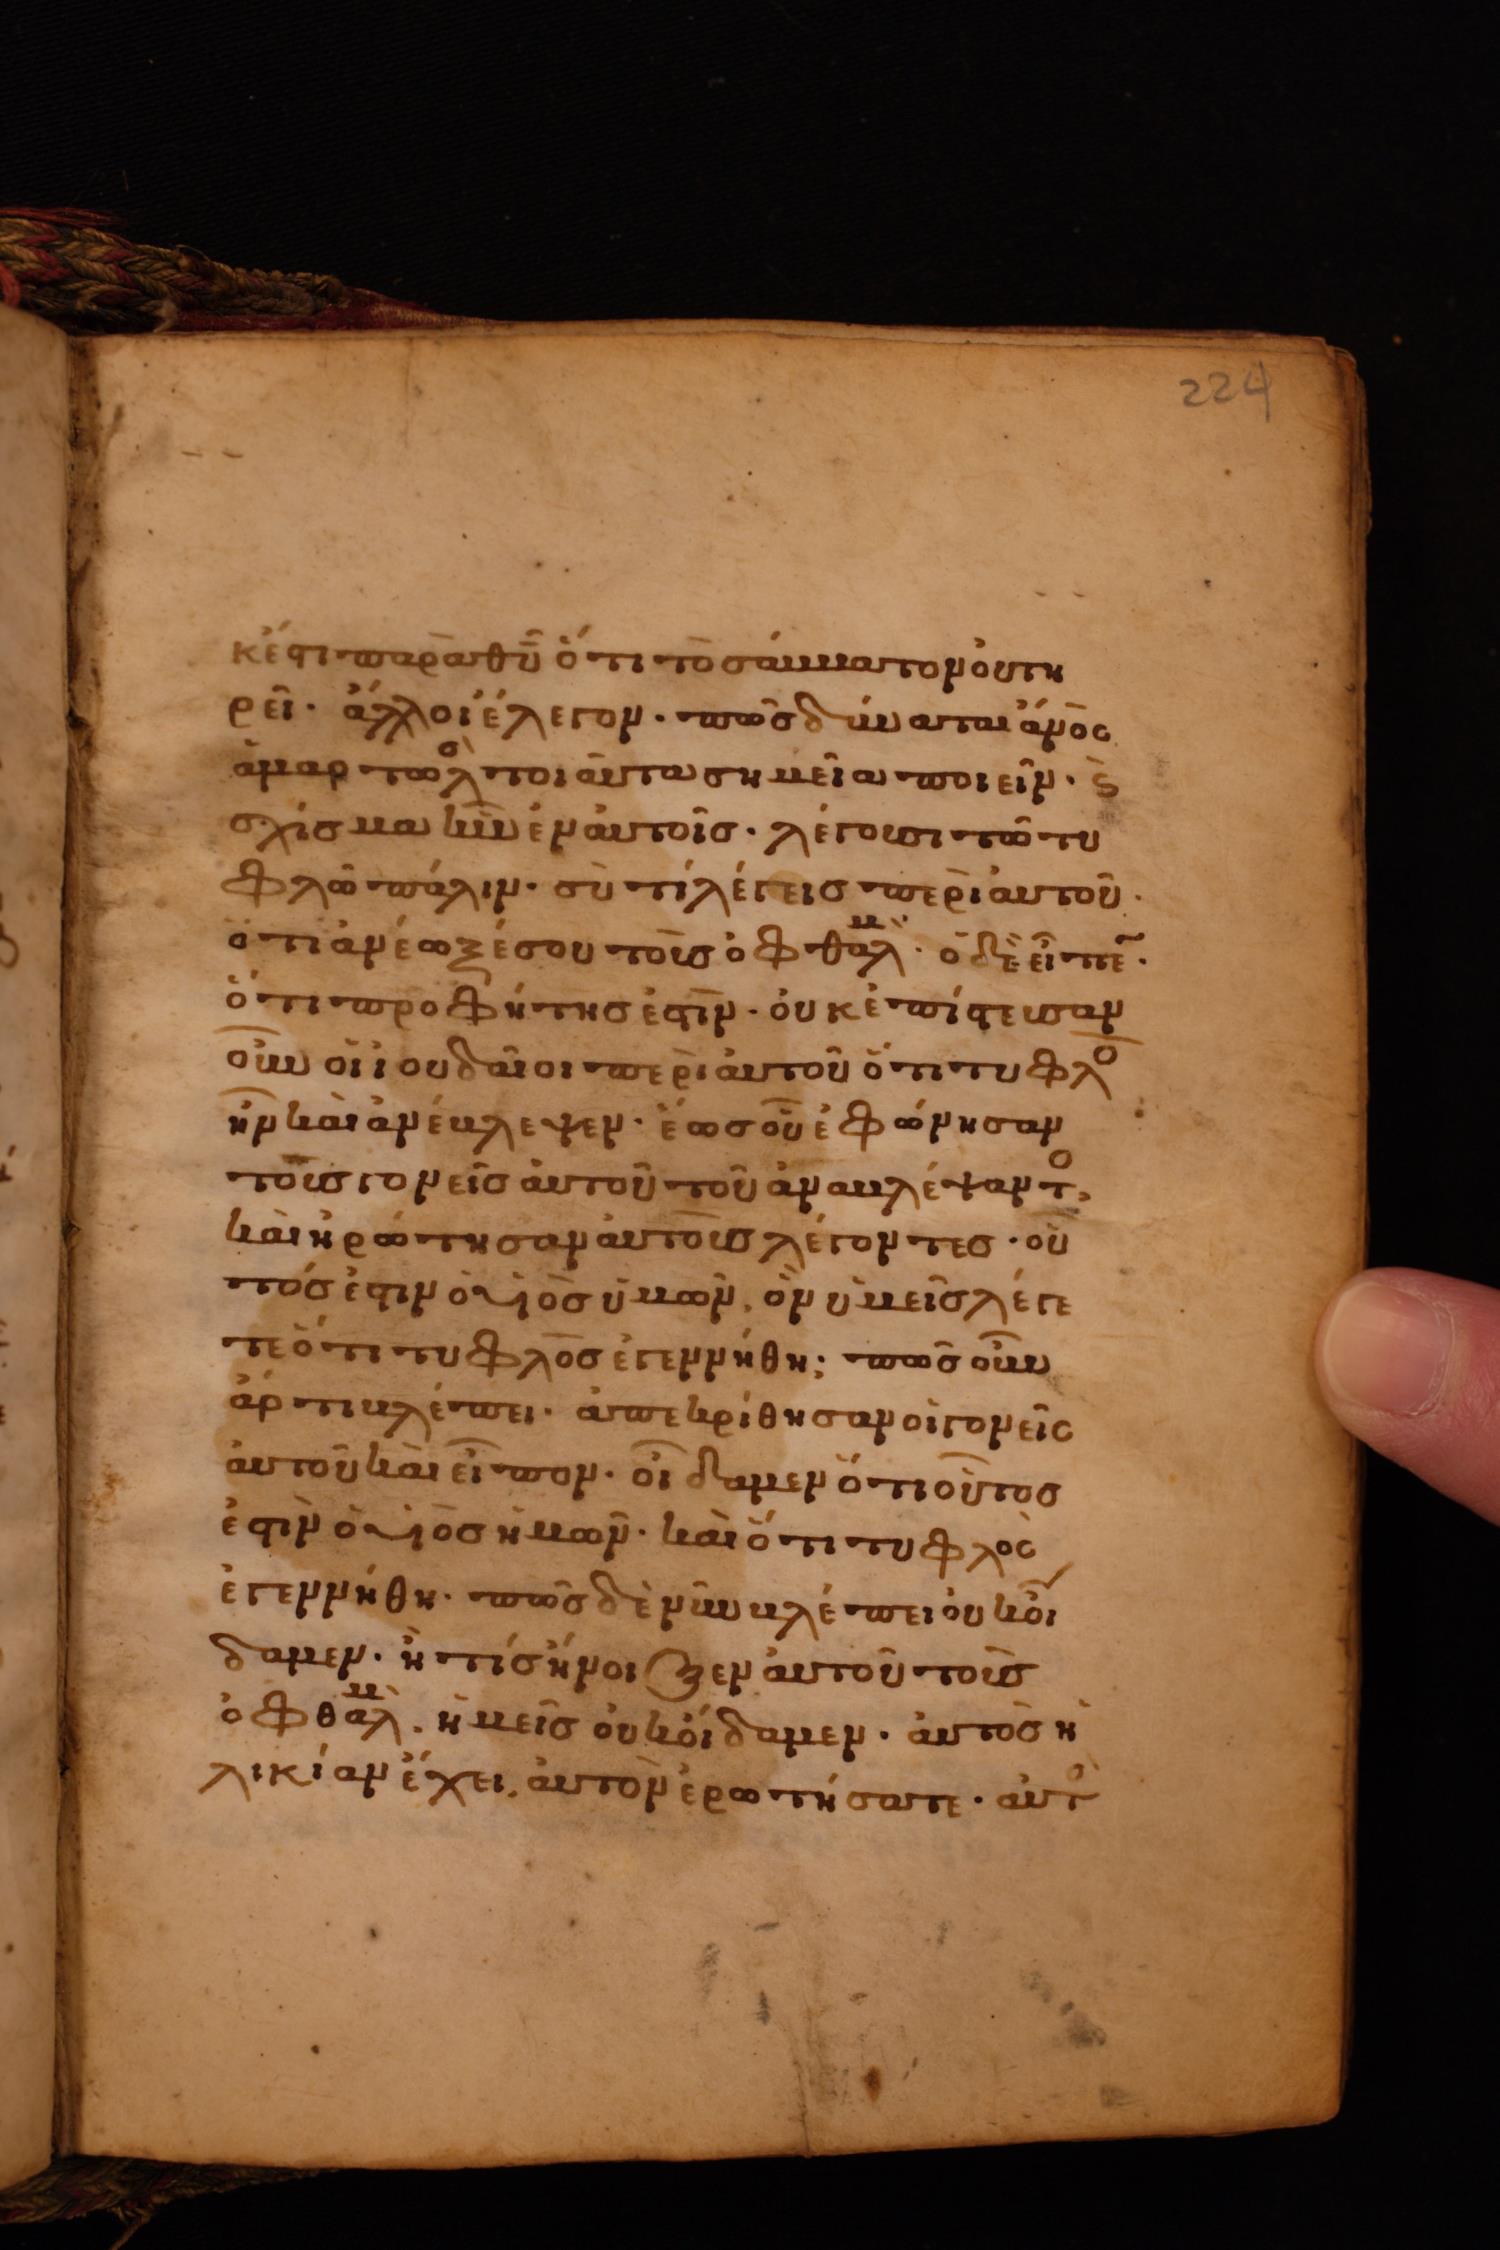 224
κ ἔστι παρὰ θῦ ὅτι τὸ σάμματον οὐ τη
ρεῖ· ἄλλοι ἔλεγον· πῶς δύναται ἄνος
ἁμαρτωλὸ τοιαῦτα σημεῖα ποιεῖν· ϛ
σχίσμα ἦν ἐν αὐτοῖς· λέγουσι τῶ τυ
φλῶ πάλιν· σὺ τί λέγεις περὶ αὐτοῦ·
ὅτι ἀνέωξέ σου τοὺς ὀφθαλμ· ὁ δὲ εἶπε·
ὅτι προφήτης ἐστίν· οὐκ ἐπίστευσαν
οὖν οἱ ἰουδαῖοι περὶ αὐτοῦ ὅτι τυφλο
ἦν καὶ ἀνέβλεψεν· ἕως οὗ ἐφώνησαν
τοὺς γονεῖς αὐτοῦ τοῦ ἀναβλέψαντο,
καὶ ἠρώτησαν αὐτοὺς λέγοντες· οὗ
τός ἐστιν ὁ υἱὸς ὑμῶν, ὃν ὑμεῖς λέγε
τε ὅτι τυφλὸς ἐγεννήθη; πῶς οὖν
ἄρτι βλέπει· ἀπεκρίθησαν οἱ γονεῖς
αὐτοῦ καὶ εἶπον· οἴδαμεν ὅτι οὗτος
ἐστὶν ὁ υἱὸς ἡμῶν· καὶ ὅτι τυφλὸς
ἐγεννήθη· πῶς δὲ νῦν βλέπει οὐκ οἴ
δαμεν· ἢ τίς ἤνοιξεν αὐτοῦ τοὺς
ὀφθαλμ. ἡμεῖς οὐκ οἴδαμεν· αὐτὸς ἡ
λικίαν ἔχει, αὐτὸν ἐρωτήσατε· αὐτο